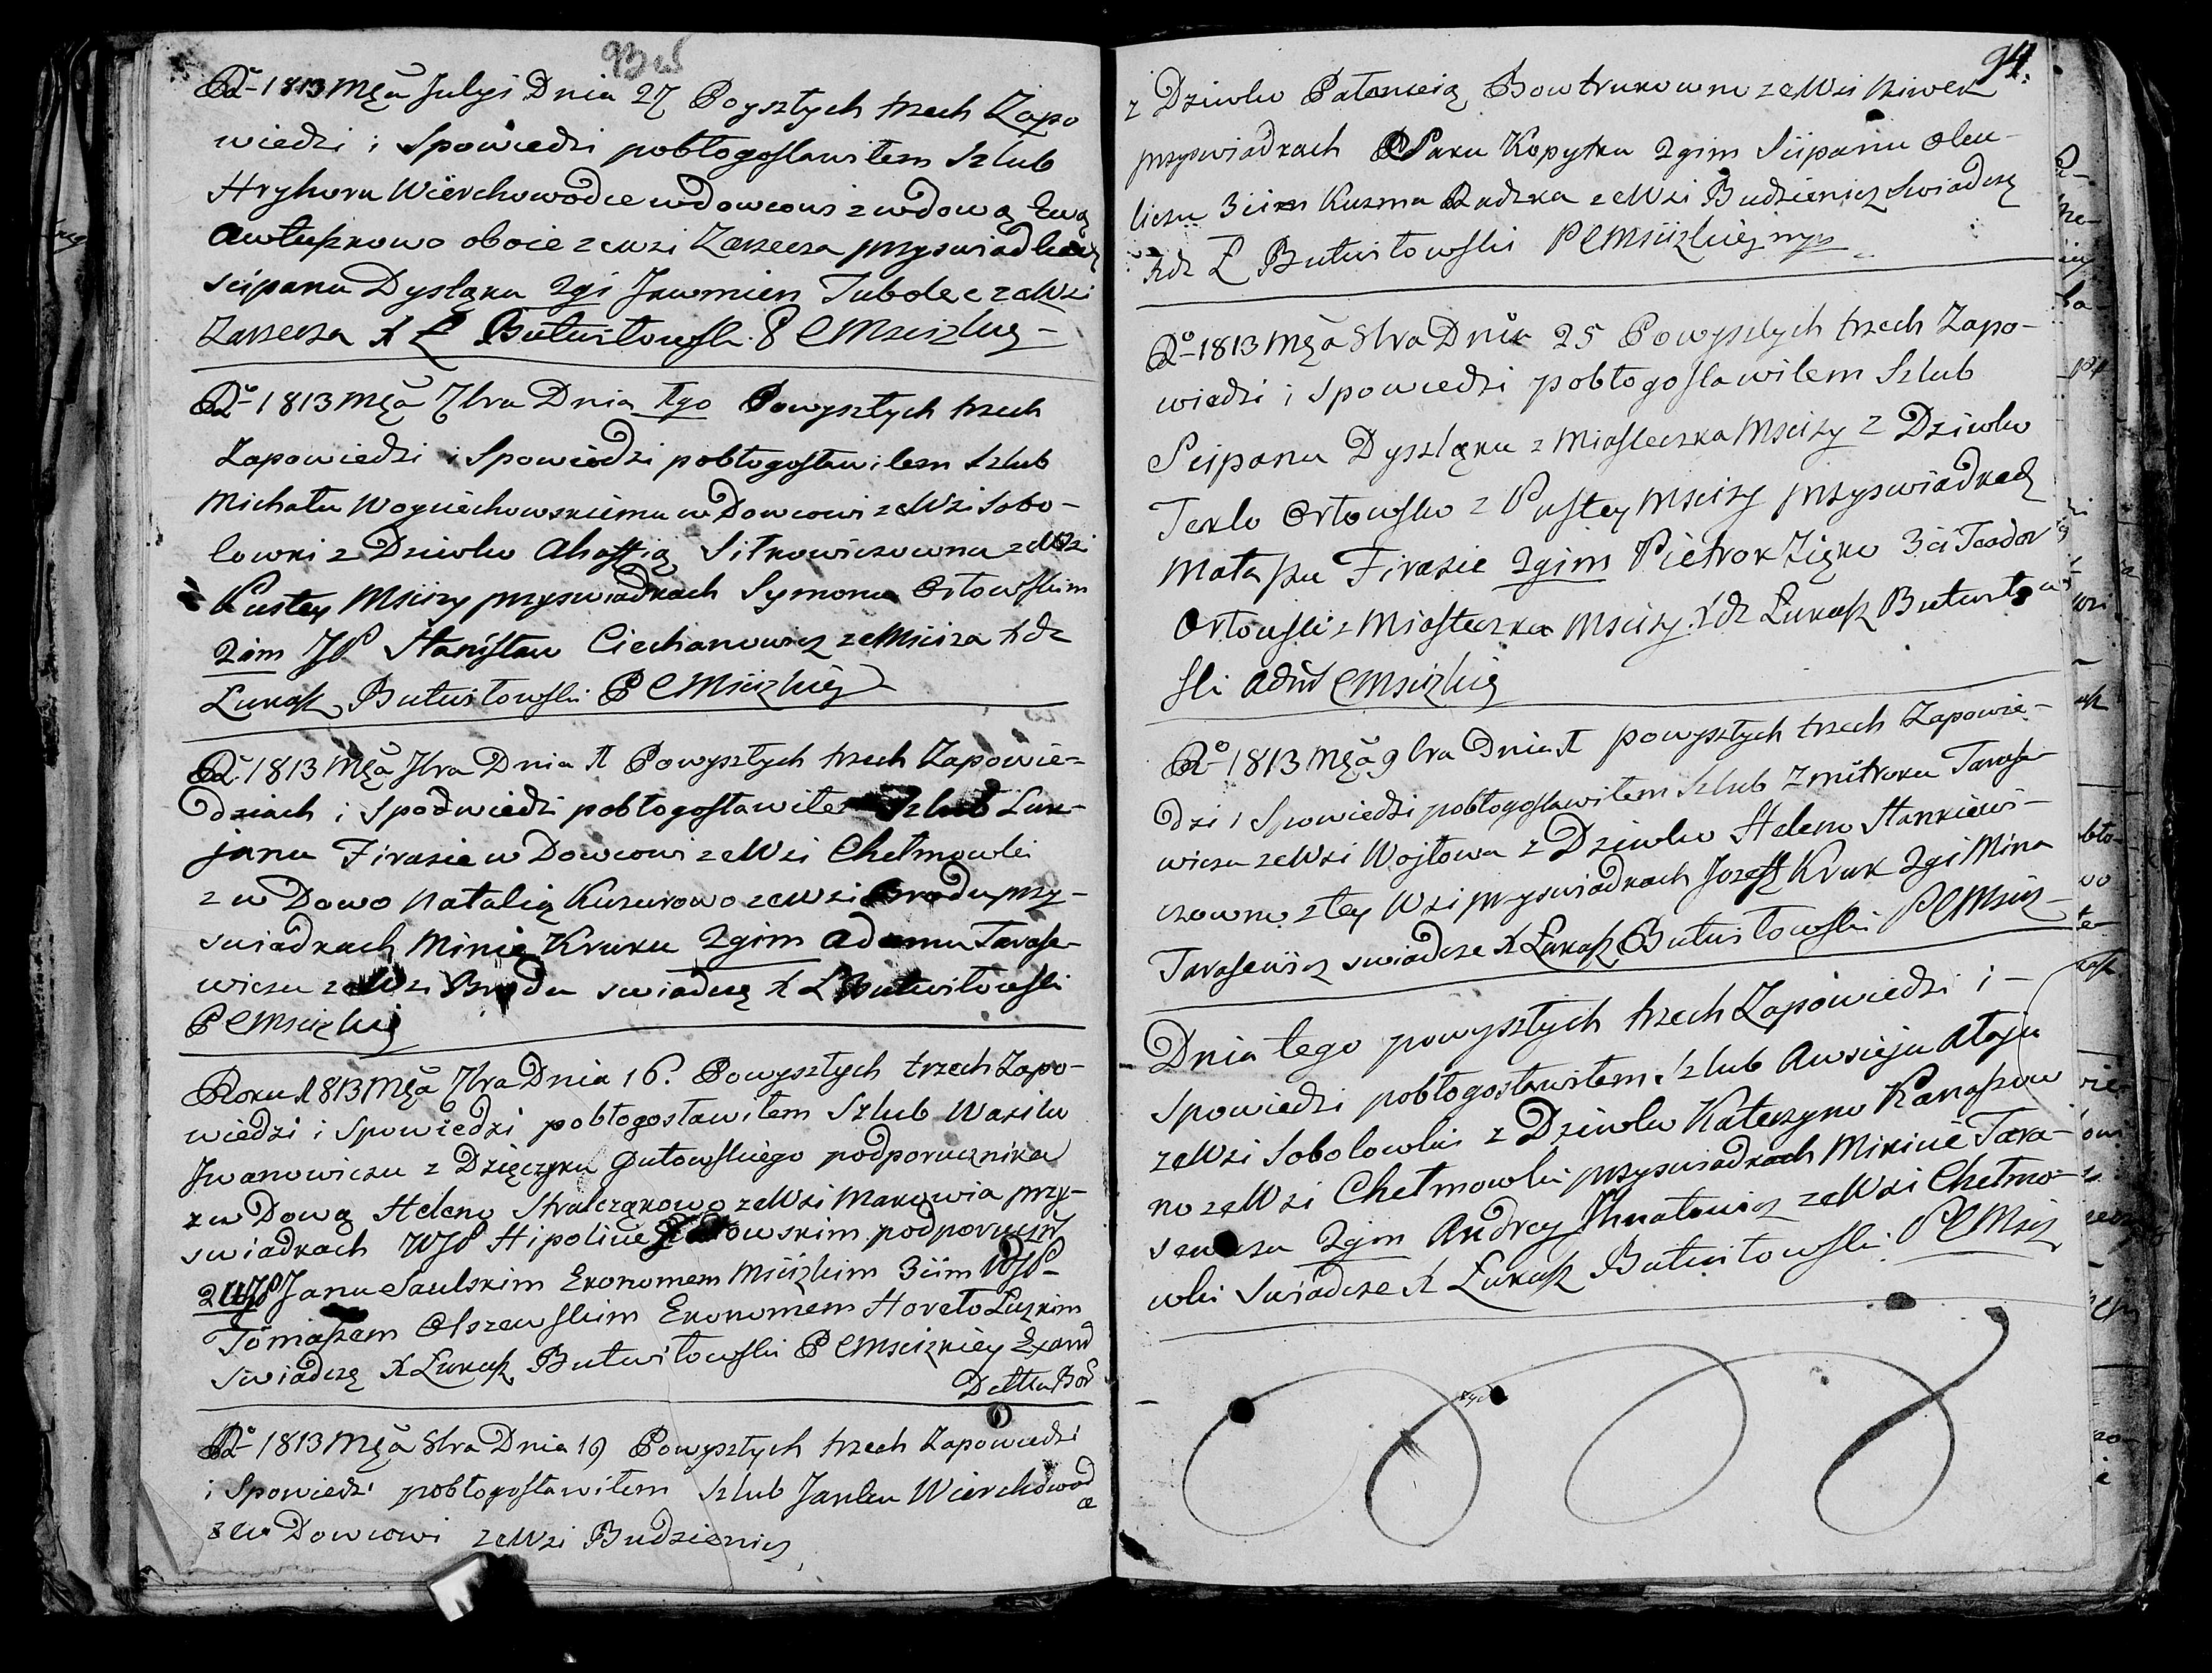 93 w
R° 1813 Mca Julyi Dnia 27 Poyszłych trzech Zapo
wiedzi i Spowiedzi pobłogosławiłem Szlub
Hryhoru Wierchowodce wdowcowi z wdową Ewą
oboie ze wsi Zarzecza przyswiadkach
Scipanu Dyszląku 2gi Jawmien Tubolec ze Wsi
Zarzecza X Ł Butwiłowski P C Mscizkiey
R° 1813 Mca 7bra Dnia Powyszłych trzech
Zapowiedzi i Spowiedzi pobłogosławiłem Szlub
Michału Woyciechowskiemu wDowcowi ze Wsi Sobo-
lowki z Dziewko Ahafią Sitkowiczowna ze Wsi
Pustey Mscizy przyswiadkach Symonu Orłowskim
2im JP Stanisław Ciechanowicz ze Mściża Xdz
Łukasz Butwiłowski P C Msciżkiey
R° 1813 Mca 7bra Dnia Powyszłych trzech Zapowie-
dziach i Spodwiedzi pobłogosławiłe Szlub Łuk-
janu Firasie wDowcowi ze Wsi Chełmowki
z wDowo Natalią Kuzurowo ze Wsi Brodu przy-
swiadkach Minie Kruku 2gim Adamu Tarase-
wiczu ze Wsi Brodu swiadczę X Ł Butwiłowski
P C Msciżkiey
Roku 1813 Mca 7bra Dnia 16. Powyszłych trzech Zapo-
wiedzi i Spowiedzi pobłogosławiłem Szlub Wasilu
Jwanowiczu z Dzięczyku Gutowskiego podporucznika
z wDową Heleno Stralcząkowo ze Wsi Makowia przy-
swiadkach WJP Hipolicie podporuczń
2 WJP Janu Saulskim Ekonomem Msciżkim 3iim WJP-
Tomaszem Olszewskim Ekonomem Horeło Łuzkim
swiadczę X Łukasz Butwiłowski P C Msciżkiey Exam
R° 1813 Mca 8bra Dnia 19 Powyszłych trzech Zapowiedzi
i Spowiedzi pobłogosławiłem Szlub Janku Wierchowod
ce
Dowcowi ze Wsi Budzienicz
94.
z Dziewko Pałanieią Bowtrukowno ze Wsi Niwek
przyswiadkach Saku Kopytku 2gim Scipanu Oleu-
liczu 3iim Kuzma Radzka ze Wsi Budzienicz Swiadczę
Xdz Ł Butwiłowski P C Msciżkiey
R° 1813 Mca 8bra Dnia 25 Powyszłych trzech Zapo-
wiedzi i Spowiedzi pobłogosławiłem Szlub
Scipanu Dyszląku z Miasteczka Mscizy z Dziewko
Teklo Orłowsko z Pustey Mscizy przyswiadkach
Firasie 2gim Pietrok Ziąko 3ci Teodor
Orłowski z Miasteczka Mscizy Xdz Łukasz Butwiłow
ski Adm C Msciżkiey
R° 1813 Mca 9bra Dnia powyszłych trzech Zapowie-
dzi i Spowiedzi pobłogosławiłem Szlub Zmitroku Tarase-
wiczu ze Wsi Wojłowa z Dziewko Heleno Stankiewi-
czowno z tey Wsi przyswiadkach Jozeff Kruk 2gi Mina
Tarasewicz swiadcze X Łukasz Butwiłowski P C Msciż-
Dnia tego powyszłych trzech Zapowiedzi i -
Spowiedzi pobłogosławiłem Szlub Awsieju Ataju
ze Wsi Sobolowki z Dziewko Katerzyno Kanaszew
no ze Wsi Chełmowki przyswiadkach Mikicie Tara-
sewiczu 2gim Andrey Jhnatowicz ze Wsi Chełmo-
wki Swiadcze X Łukasz Butwiłowski P C Msciż